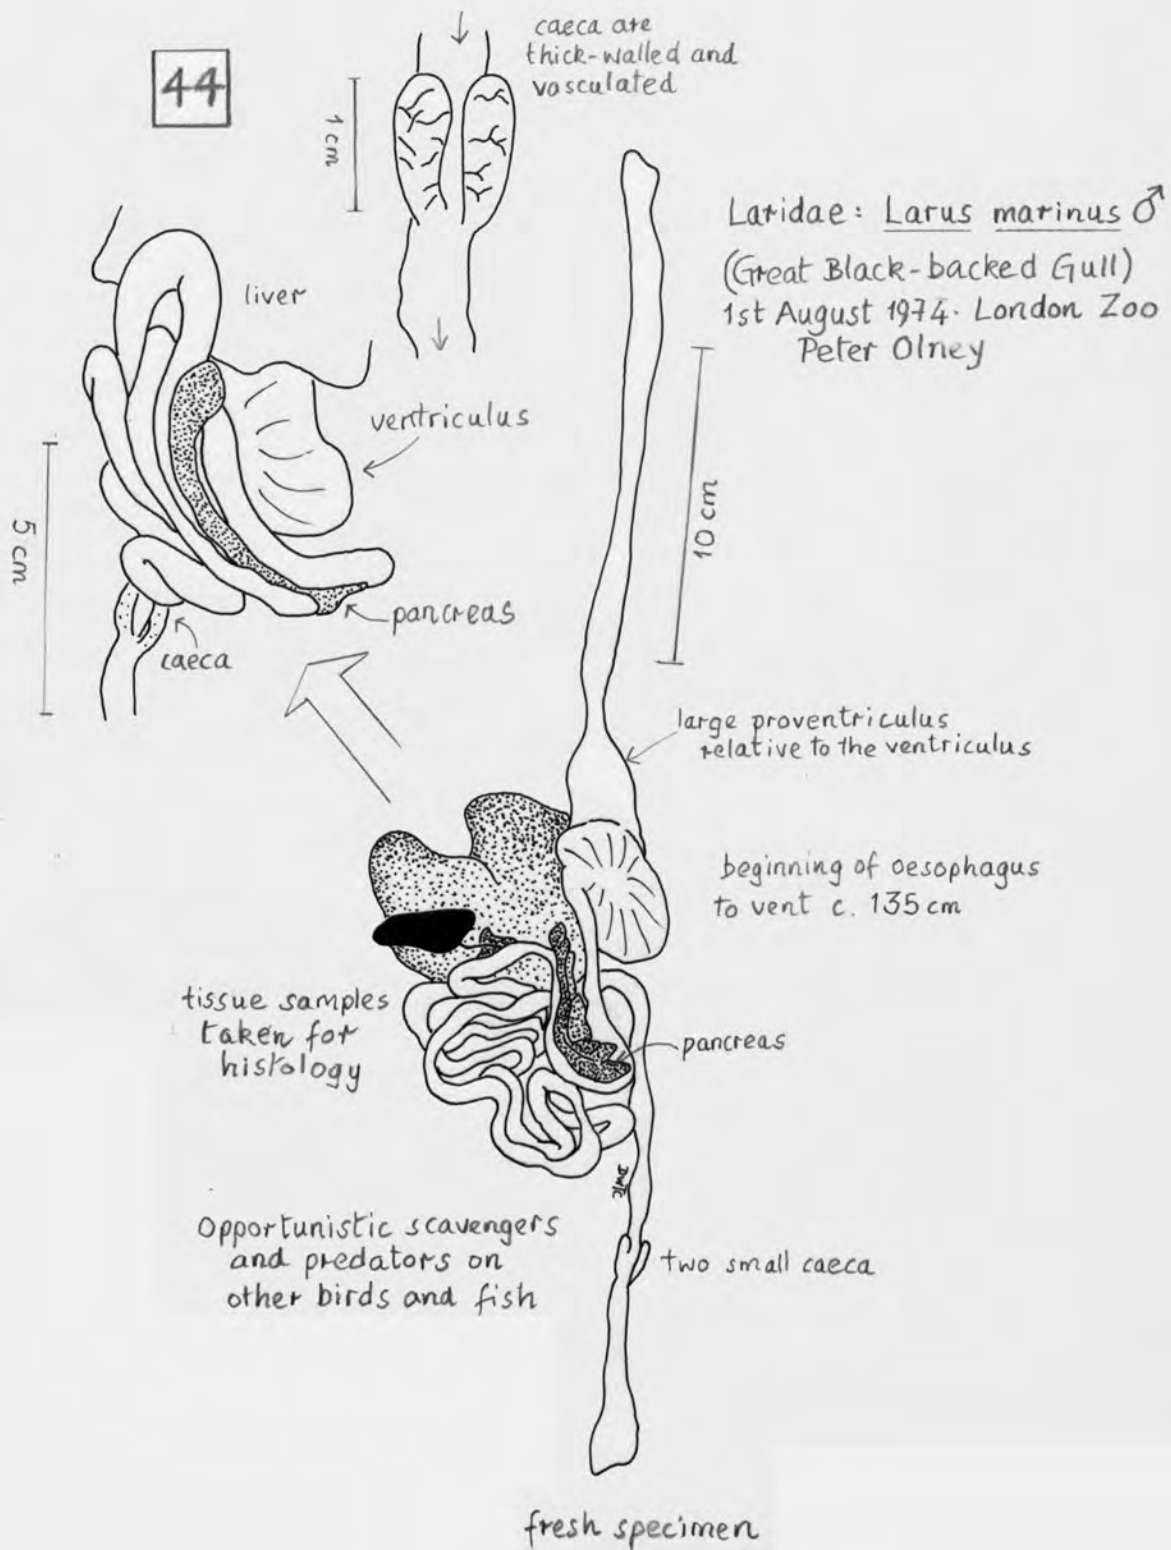 44
caeca are
thick-walled and
vasculated
1 cm
Laridae: Larus marinus ♂
(Great Black-backed Gull)
1st August 1974. London Zoo
Peter Olney
liver
ventriculus
5 cm
10 cm
pancreas
caeca
large proventriculus
relative to the ventriculus
beginning of oesophagus
to vent c. 135 cm
tissue samples
taken for
histology
pancreas
Opportunistic scavengers
and predators on
other birds and fish
two small caeca
fresh specimen